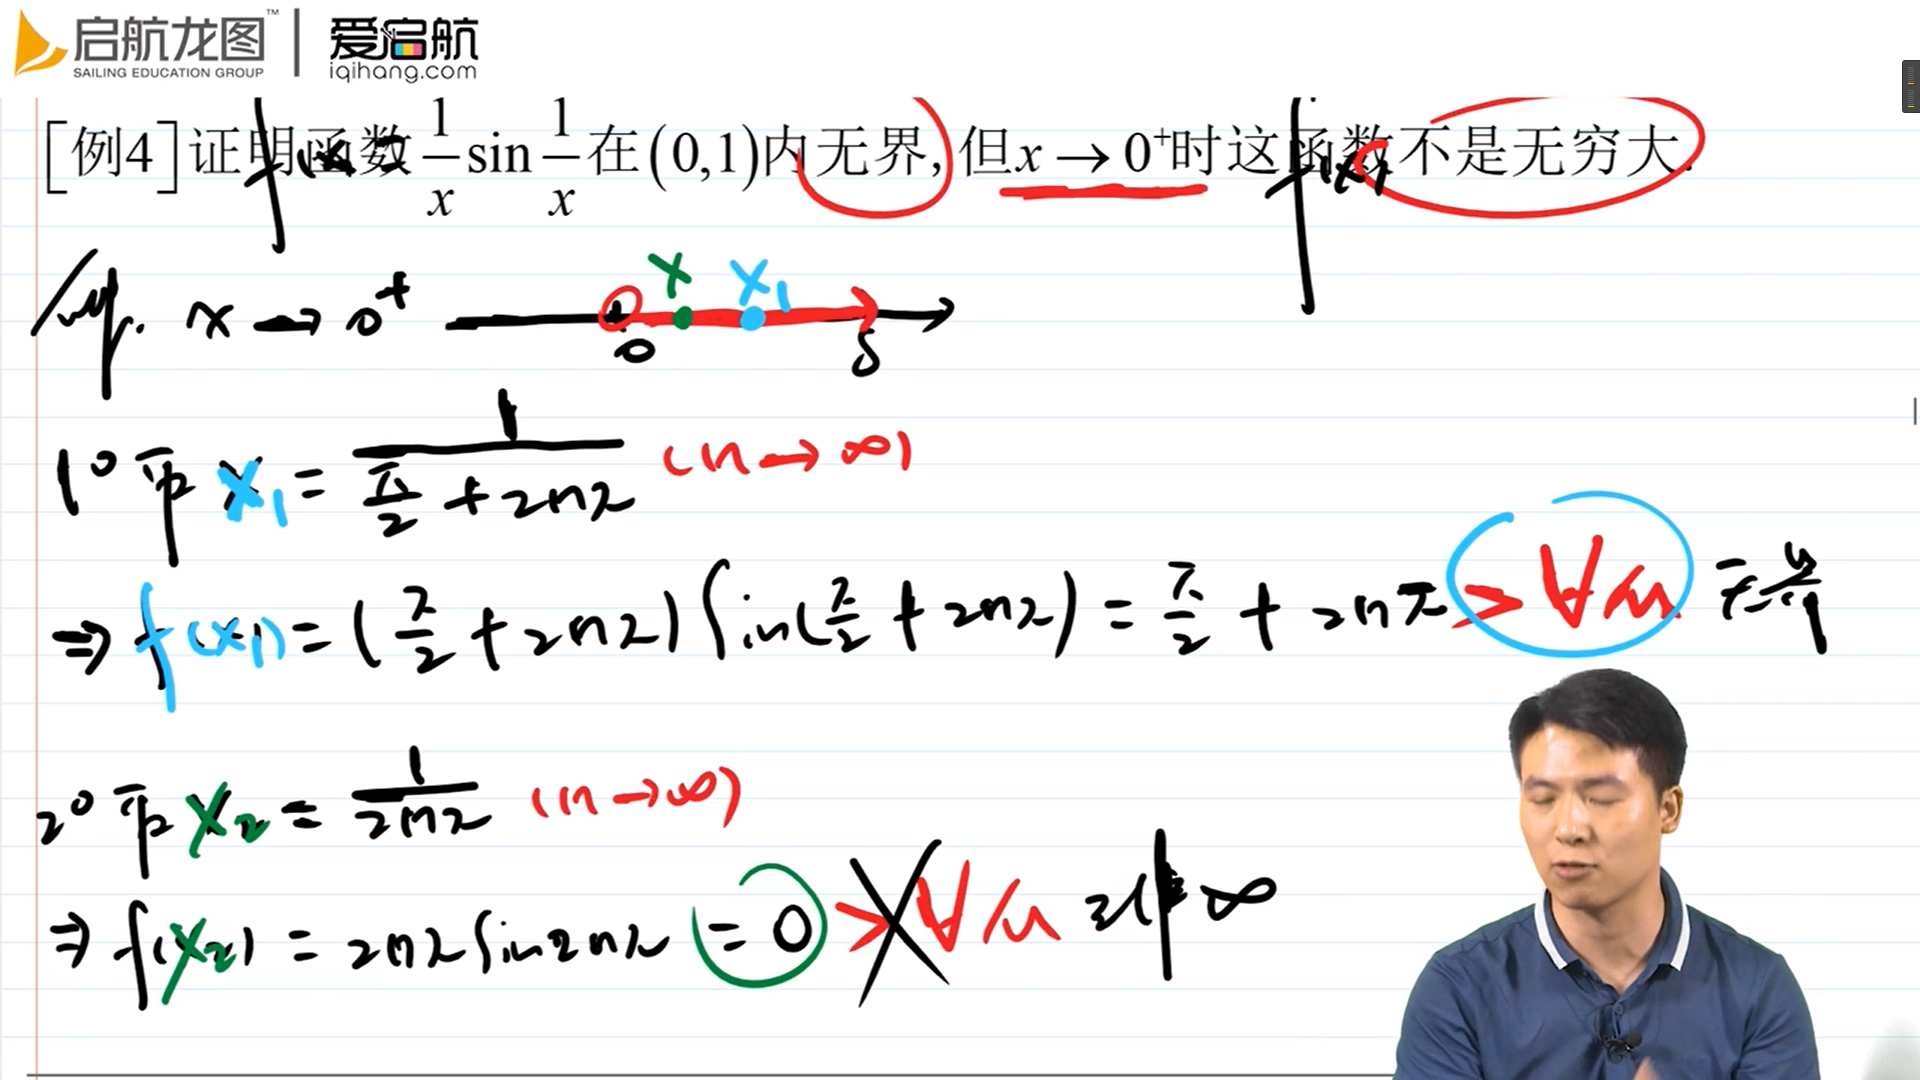 启航龙图™ 爱启航
SAILING EDUCATION GROUP iqihang.com
[例4]证明函数 1/x sin 1/x 在(0,1)内无界,但x→0⁺时这函数不是无穷大.
f(x)= f(x)
x→0⁺ x x₁
0 δ
1° 取 x₁ = 1/(π/2+2nπ) (n→∞)
⇒ f(x₁) = (π/2+2nπ) sin(π/2+2nπ) = π/2+2nπ > ∀M 无界
2° 取 x₂ = 1/(2nπ) (n→∞)
⇒ f(x₂) = 2nπ sin2nπ = 0 > ∀M 非 ∞